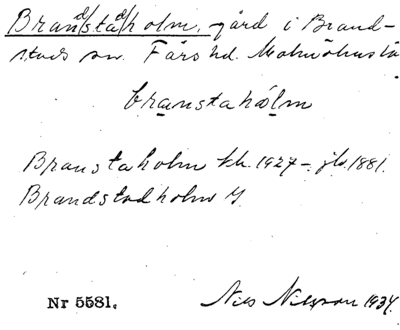 Bran/d/sta/d/holm, gård i Brand-
stads sn. Färs hd. Malmöhus lä
branstahólm
Branstaholm kk. 1927 – jb. 1881.
Brandstadholm
Nr 5581. Nils Nilsson 1934.